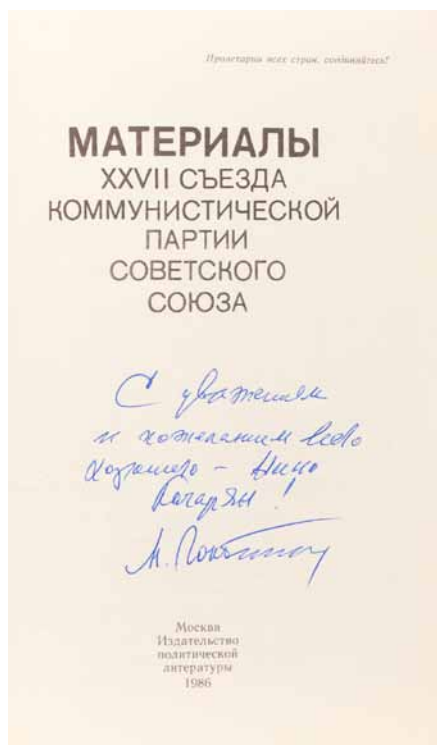 Пролетарии всех стран, соединяйтесь!
МАТЕРИАЛЫ
XXVII СЪЕЗДА
КОММУНИСТИЧЕСКОЙ
ПАРТИИ
СОВЕТСКОГО
СОЮЗА
С уважением
и пожеланием всего
хорошего – Нино
!
М.
Москва
Издательство
политической
литературы
1986